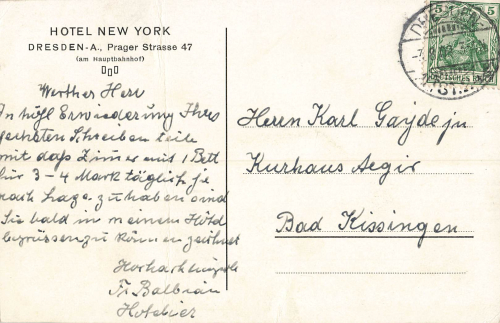 HOTEL NEW YORK
DRESDEN-A., Prager Strasse 47
(am Hauptbahnhof)
Werther Herr
In höfl Erwiederung Ihres
geehrten Schreiben teile
mit daß Zimer mit 1 Bett
für 3-4 Mark täglich je
nach Lage zu haben sind
Sie bald in meinem Hotel
begrüssen zu können zeichnet
Hochachtungsvoll
Hotelier
5
DRESDEN
Herrn Karl Gayde jn
Kurhaus Aegir
Bad Kissingen